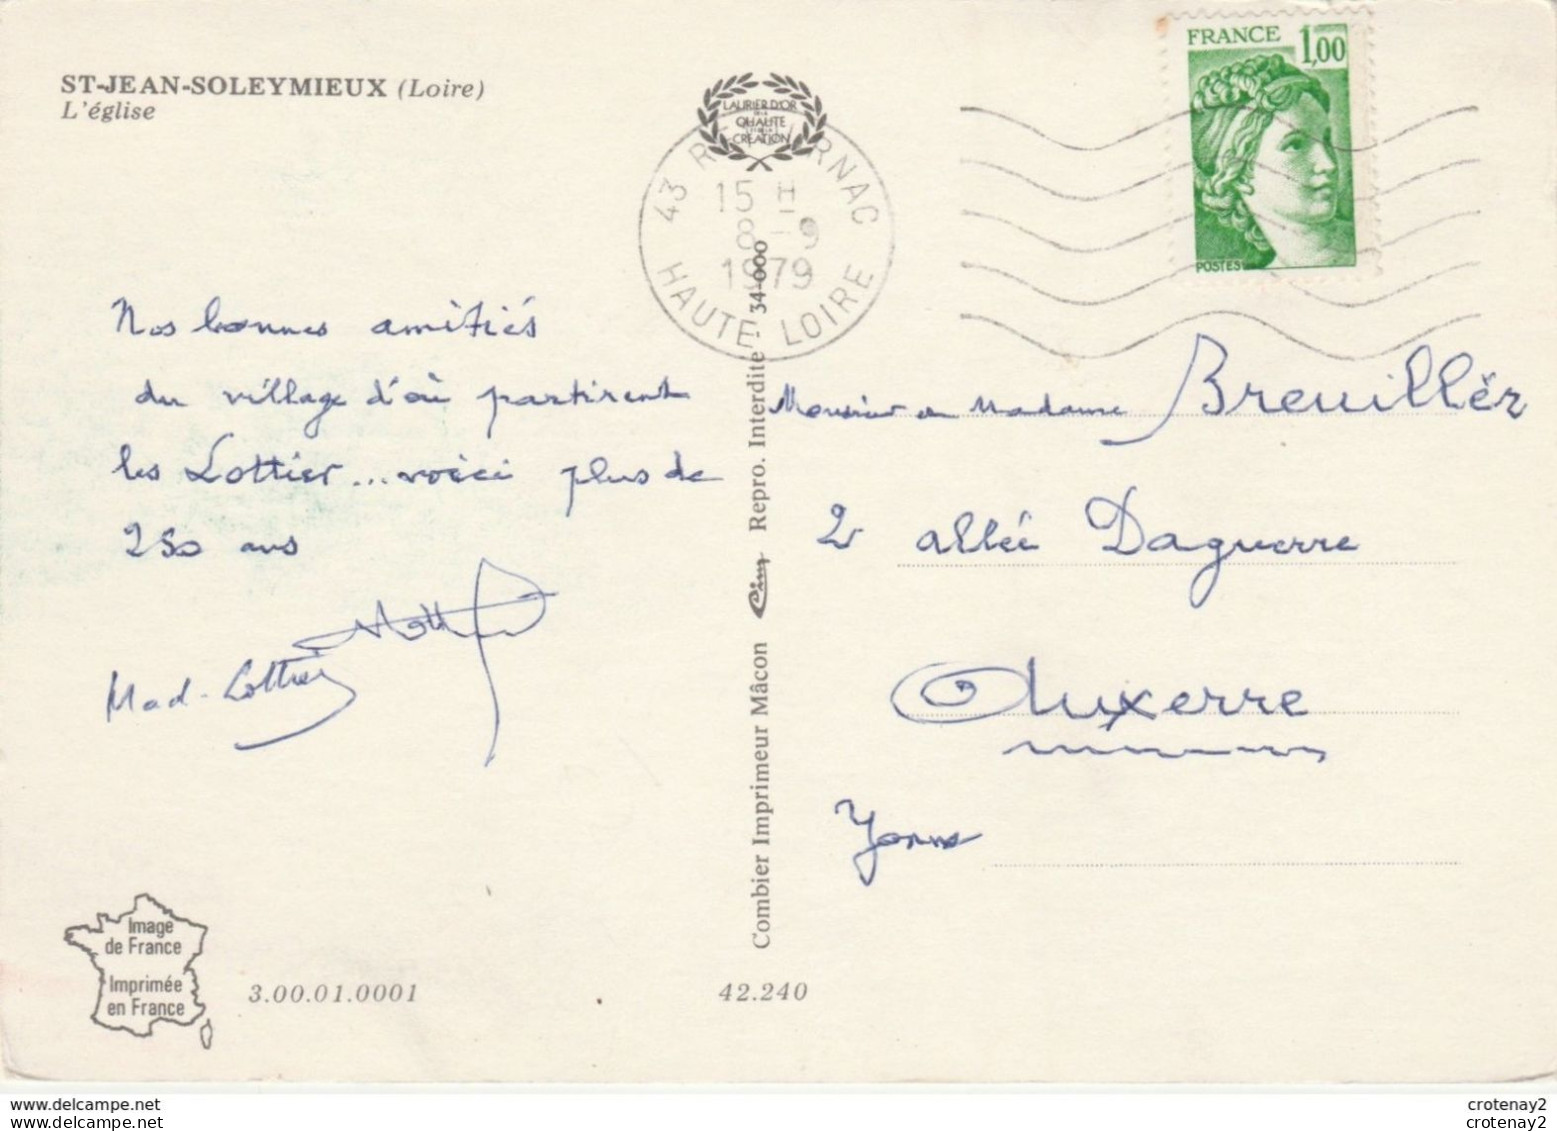 ST-JEAN-SOLEYMIEUX (Loire)
L'église
LAURIER D'OR
QUALITE
CREATION
FRANCE 1,00
POSTES
43 R RNAC
15 H
8-9
1979
HAUTE LOIRE
Nos bonnes amitiés
du village d'où partirent
les Lottier... voici plus de
250 ans
Mad. Lottier
Monsieur Madame Breuillér
2 allée Daguerre
Auxerre
Yonne
Combier Imprimeur Mâcon Cim Repro. Interdite - 34-000
Image
de France
Imprimée
en France
3.00.01.0001
42.240
www.delcampe.net
www.delcampe.net
crotenay2
crotenay2